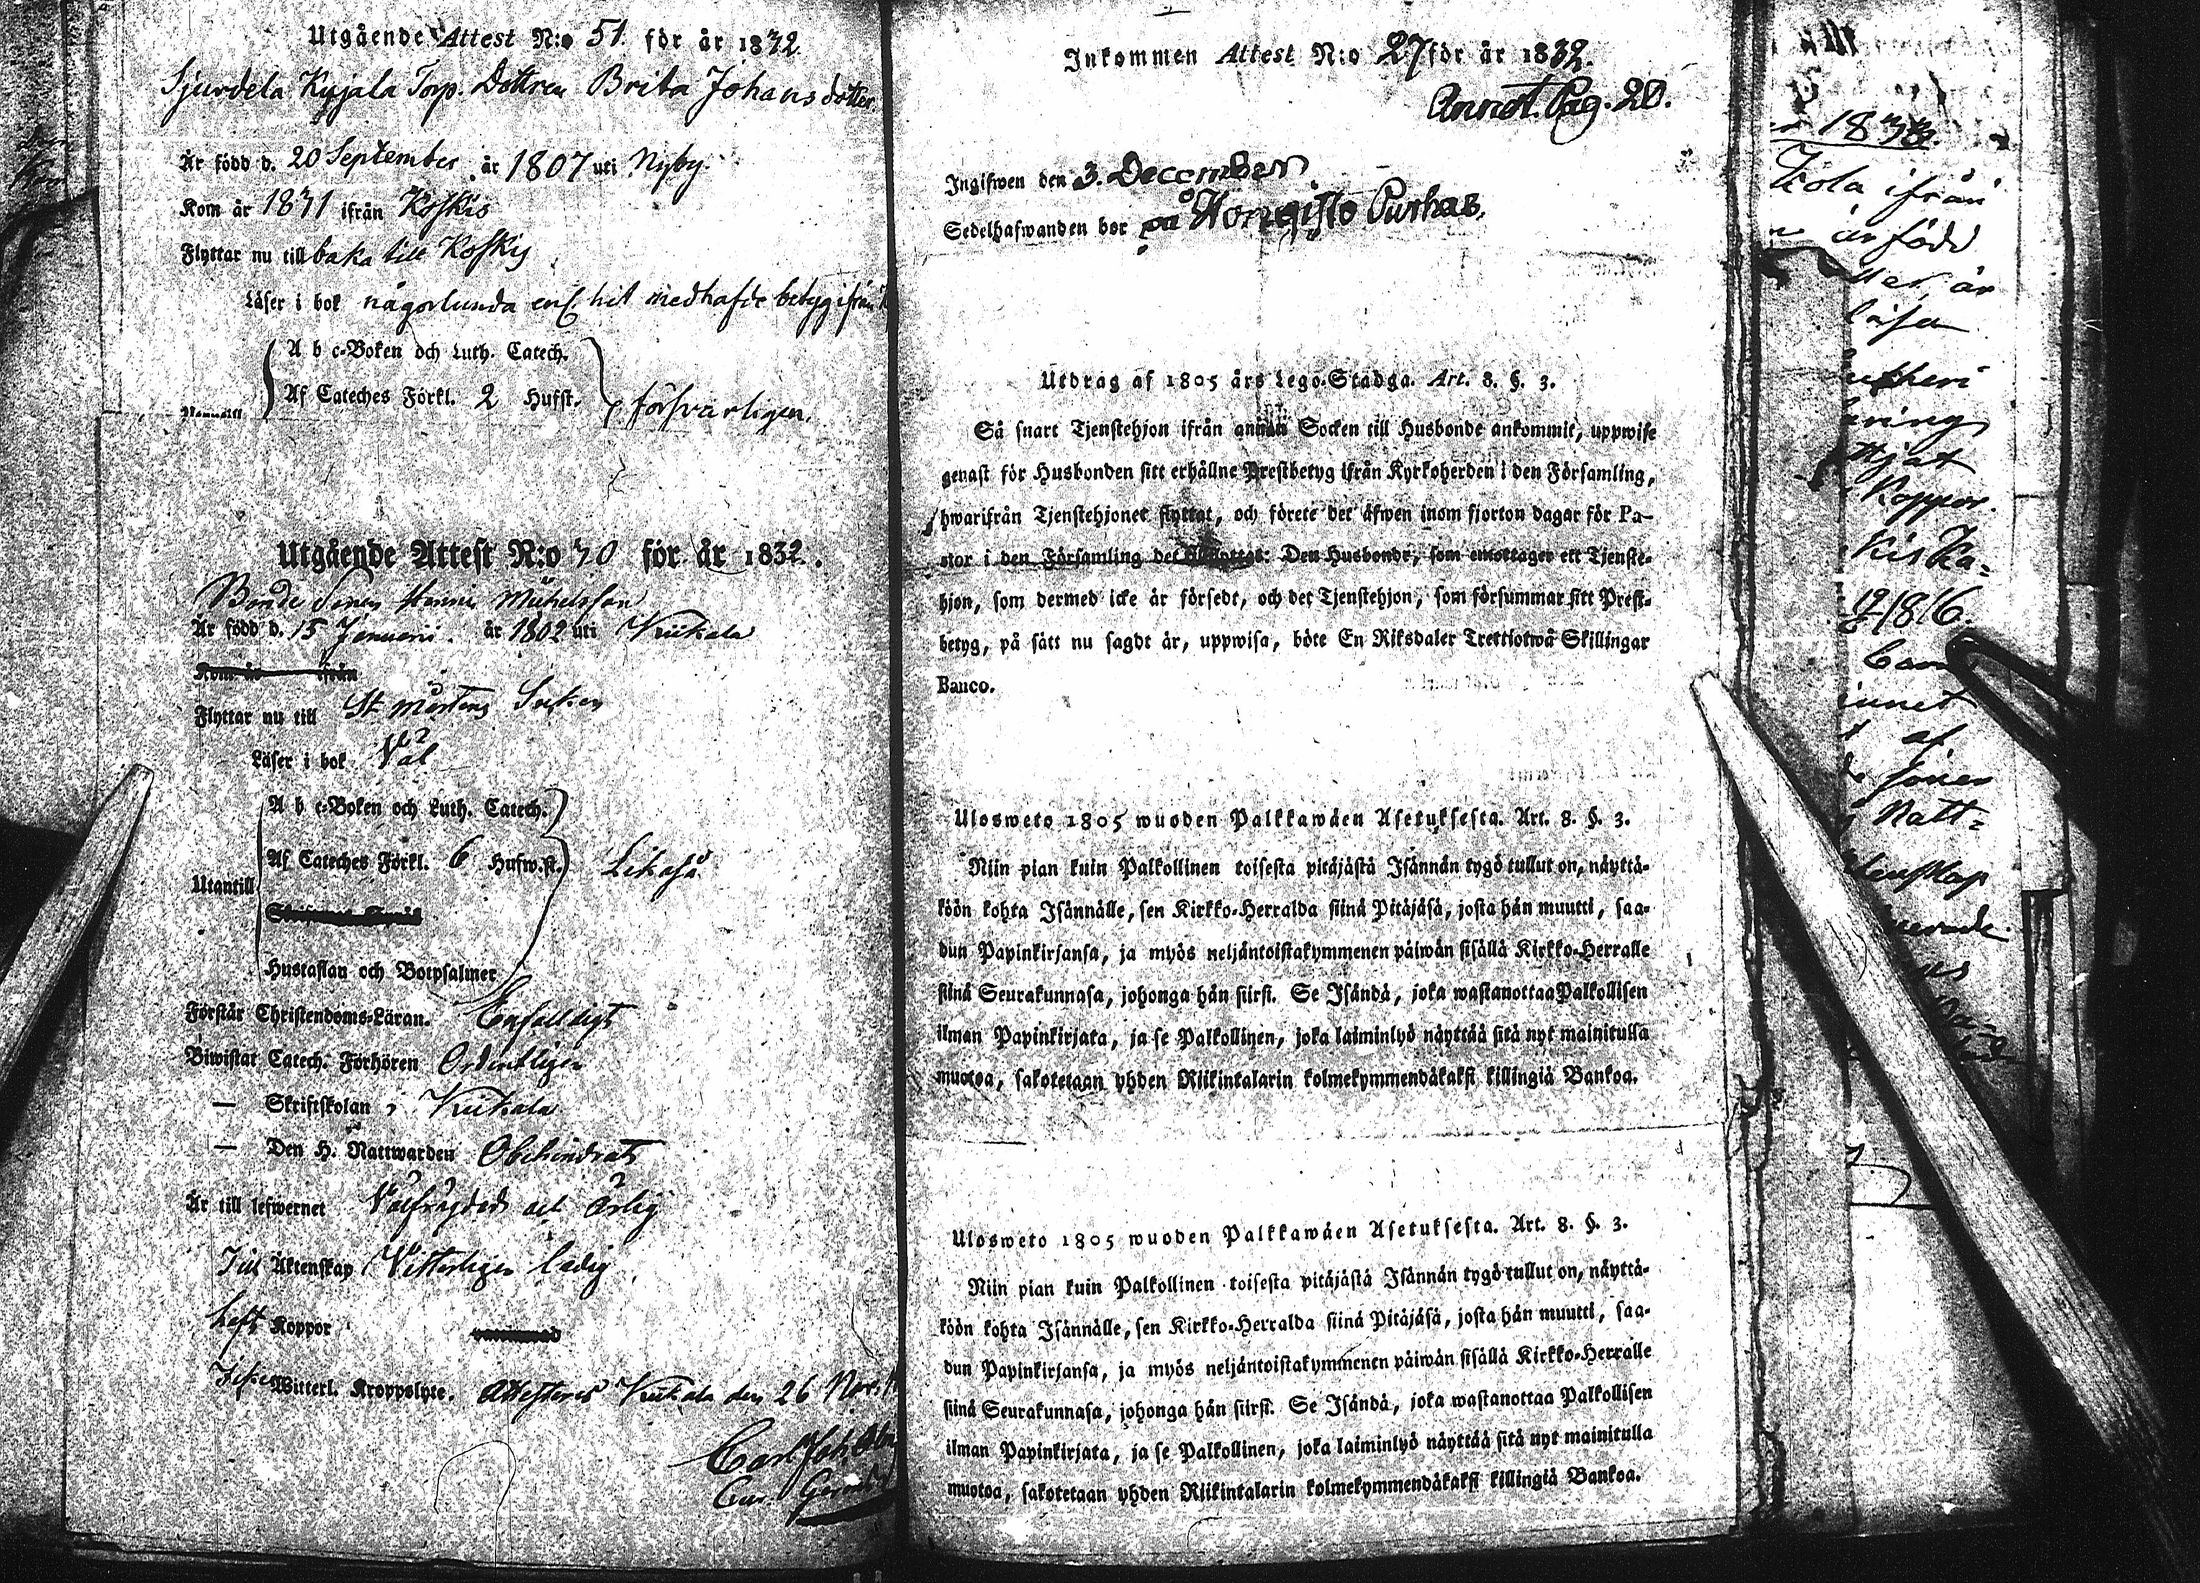 Utgående Attest N:o 51. för år 1832.
Sjurdela Kujala Torp. Dottren Brita Johansdotter
Är född d. 20 September. år 1807 uti Nyby.
Kom år 1831 ifrån Koskis
Flyttar nu till baka till Koskis
Läser i bok någorlunda enl. hit medhafde betyg ifrån
A b c-Boken och Luth. Catech.
Af Cateches Förkl. 2 Hufst.
försvarligen.
Utgående Attest N:o 70 för år 1832.
Bonde Sonen Henric Michelsson
Är född d. 15 Januarii. år 1802 uti Kiikala
Kom år ifrån
Flyttar nu till St Mårtens Socken
Läser i bok Väl
A b c-Boken och Luth. Catech.
Af Cateches Förkl. 6 Hufw.st. Likaså
Utantill
Hustaflan och Botpsalmer
Förstår Christendoms-Läran. Enfaldigt
Biwistat Catech. Förhören Ordentligen
— Skriftskolan i Kiikala
— Den H. Nattwarden Obehindrat
Är till lefwernet Välfrägdad och Ärlig
Till Äktenskap Vitterligen ledig
Haft Koppor
Icke Witterl. Kroppslyte. Attesteras Kiikala den 26 Nov.
Carl Joh.
Inkommen Attest N:o 27 för år 1832.
Annot. Pag. 20.
Ingifwen den 3. December
Sedelhafwanden bor på Hongisto Purhas.
Utdrag af 1805 års Lego-Stadga. Art. 8. §. 3.
Så snart Tjenstehjon ifrån annan Socken till Husbonde ankommit, uppwise
genast för Husbonden sitt erhållne Prestbetyg ifrån Kyrkoherden i den Församling,
hwarifrån Tjenstehjonet flyttat, och förete det äfwen inom fjorton dagar för Pa-
stor i den Församling det: Den Husbonde, som emottager ett Tjenste-
hjon, som dermed icke är försedt, och det Tjenstehjon, som försummar sitt Prest-
betyg, på sätt nu sagdt är, uppwisa, böte En Riksdaler Trettiotwå Skillingar
Banco.
Ulosweto 1805 wuoden Palkkawäen Asetuksesta. Art. 8. §. 3.
Niin pian kuin Palkollinen toisesta pitäjästä Isännän tygö tullut on, näyttä-
köön kohta Isännälle, sen Kirkko-Herralda siinä Pitäjäsä, josta hän muutti, saa-
dun Papinkirjansa, ja myös neljäntoistakymmenen päiwän sisällä Kirkko-Herralle
siinä Seurakunnasa, johonga hän siirsi. Se Isändä, joka wastanottaa Palkollisen
ilman Papinkirjata, ja se Palkollinen, joka laiminlyö näyttää sitä nyt mainitulla
muotoa, sakotetaan yhden Riikintalarin kolmekymmendäkaksi killingiä Bankoa.
Ulosweto 1805 wuoden Palkkawäen Asetuksesta. Art. 8. §. 3.
Niin pian kuin Palkollinen toisesta pitäjästä Isännän tygö tullut on, näyttä-
köön kohta Isännälle, sen Kirkko-Herralda siinä Pitäjäsä, josta hän muutti, saa-
dun Papinkirjansa, ja myös neljäntoistakymmenen päiwän sisällä Kirkko-Herralle
siinä Seurakunnasa, johonga hän siirsi. Se Isändä, joka wastanottaa Palkollisen
ilman Papinkirjata, ja se Palkollinen, joka laiminlyö näyttää sitä nyt mainitulla
muotoa, sakotetaan yhden Riikintalarin kolmekymmendäkaksi killingiä Bankoa.
ifrån
är född
läsa
Koppor.
1816.
Natt-